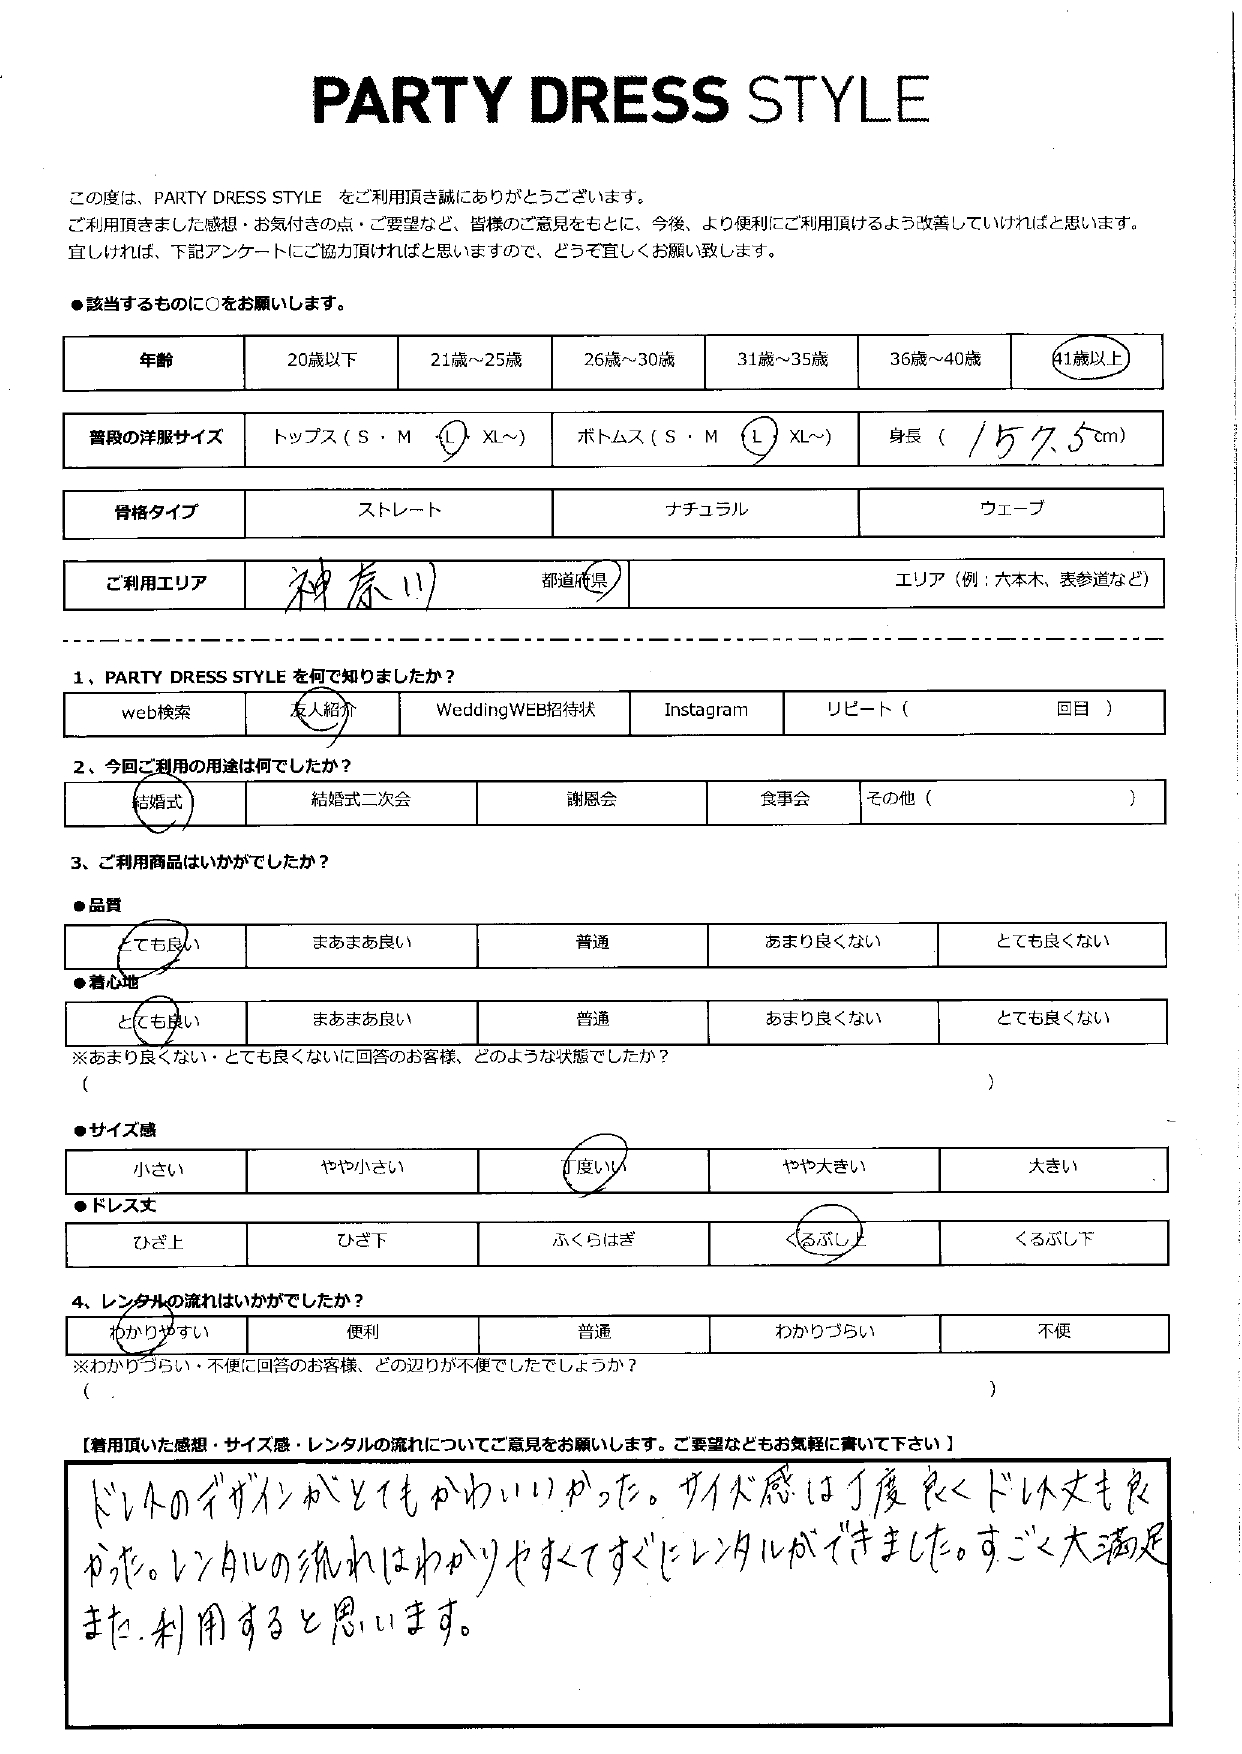 PARTY DRESS STYLE
この度は、PARTY DRESS STYLE をご利用頂き誠にありがとうございます。
ご利用頂きました感想・お気付きの点・ご要望など、皆様のご意見をもとに、今後、より便利にご利用頂けるよう改善していければと思います。
宜しければ、下記アンケートにご協力頂ければと思いますので、どうぞ宜しくお願い致します。
●該当するものに○をお願いします。
年齢 20歳以下 21歳～25歳 26歳～30歳 31歳～35歳 36歳～40歳 41歳以上
普段の洋服サイズ トップス ( S ・ M ・ L ・ XL～) ボトムス ( S ・ M ・ L ・ XL～) 身長 ( 157.5 cm)
骨格タイプ ストレート ナチュラル ウェーブ
ご利用エリア 神奈川 都道府県 エリア（例：六本木、表参道など）
1、PARTY DRESS STYLE を何で知りましたか？
web検索 友人紹介 WeddingWEB招待状 Instagram リピート（ 回目 ）
2、今回ご利用の用途は何でしたか？
結婚式 結婚式二次会 謝恩会 食事会 その他（ ）
3、ご利用商品はいかがでしたか？
●品質
とても良い まあまあ良い 普通 あまり良くない とても良くない
●着心地
とても良い まあまあ良い 普通 あまり良くない とても良くない
※あまり良くない・とても良くないに回答のお客様、どのような状態でしたか？
( )
●サイズ感
小さい やや小さい 丁度いい やや大きい 大きい
●ドレス丈
ひざ上 ひざ下 ふくらはぎ くるぶし上 くるぶし下
4、レンタルの流れはいかがでしたか？
わかりやすい 便利 普通 わかりづらい 不便
※わかりづらい・不便に回答のお客様、どの辺りが不便でしたでしょうか？
( )
【着用頂いた感想・サイズ感・レンタルの流れについてご意見をお願いします。ご要望などもお気軽に書いて下さい 】
ドレスのデザインがとてもかわいいかった。サイズ感は丁度良くドレス丈も良
かった。レンタルの流れはわかりやすくてすぐにレンタルができました。すごく大満足
また、利用すると思います。